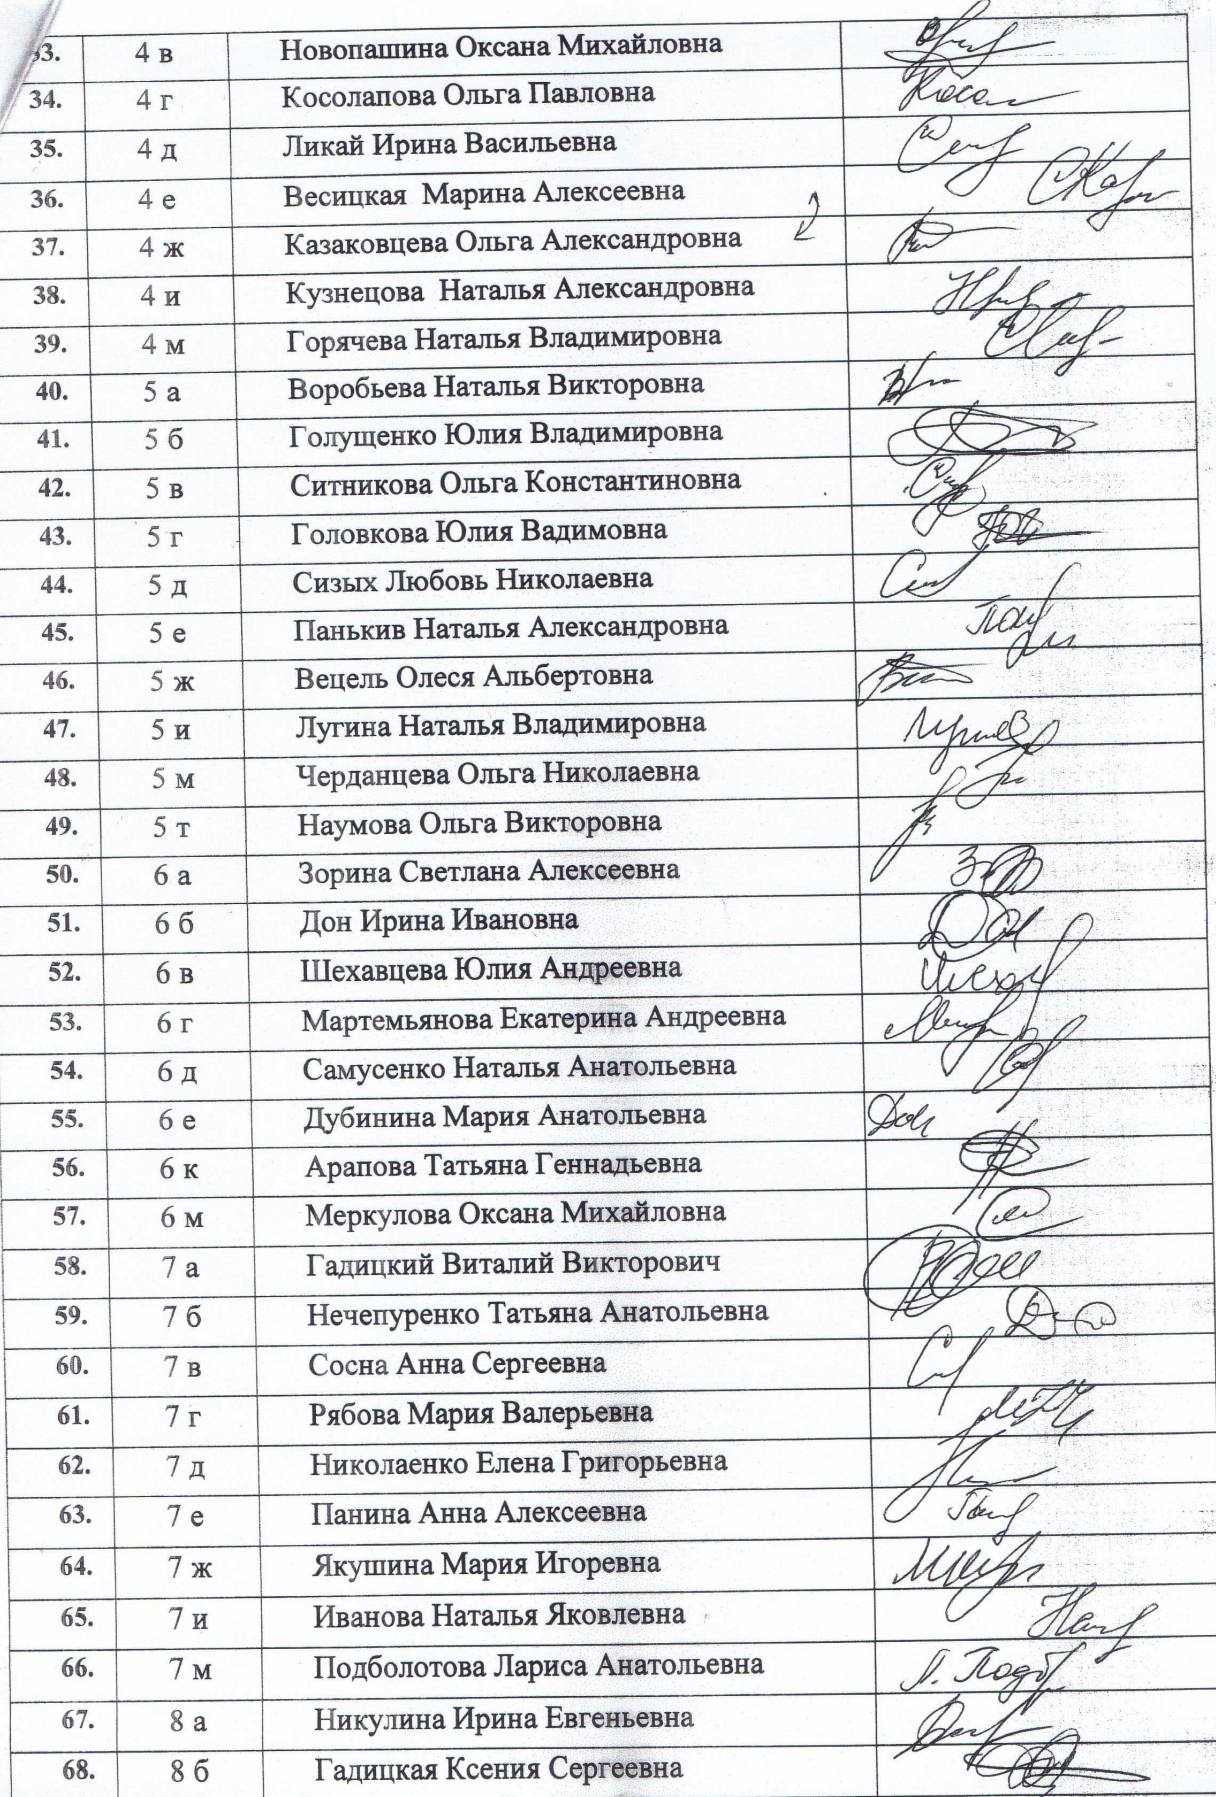 33. 4 в Новопашина Оксана Михайловна
34. 4 г Косолапова Ольга Павловна
35. 4 д Ликай Ирина Васильевна
36. 4 е Весицкая Марина Алексеевна
37. 4 ж Казаковцева Ольга Александровна
38. 4 и Кузнецова Наталья Александровна
39. 4 м Горячева Наталья Владимировна
40. 5 а Воробьева Наталья Викторовна
41. 5 б Голущенко Юлия Владимировна
42. 5 в Ситникова Ольга Константиновна
43. 5 г Головкова Юлия Вадимовна
44. 5 д Сизых Любовь Николаевна
45. 5 е Панькив Наталья Александровна
46. 5 ж Вецель Олеся Альбертовна
47. 5 и Лугина Наталья Владимировна
48. 5 м Черданцева Ольга Николаевна
49. 5 т Наумова Ольга Викторовна
50. 6 а Зорина Светлана Алексеевна
51. 6 б Дон Ирина Ивановна
52. 6 в Шехавцева Юлия Андреевна
53. 6 г Мартемьянова Екатерина Андреевна
54. 6 д Самусенко Наталья Анатольевна
55. 6 е Дубинина Мария Анатольевна
56. 6 к Арапова Татьяна Геннадьевна
57. 6 м Меркулова Оксана Михайловна
58. 7 а Гадицкий Виталий Викторович
59. 7 б Нечепуренко Татьяна Анатольевна
60. 7 в Сосна Анна Сергеевна
61. 7 г Рябова Мария Валерьевна
62. 7 д Николаенко Елена Григорьевна
63. 7 е Панина Анна Алексеевна
64. 7 ж Якушина Мария Игоревна
65. 7 и Иванова Наталья Яковлевна
66. 7 м Подболотова Лариса Анатольевна
67. 8 а Никулина Ирина Евгеньевна
68. 8 б Гадицкая Ксения Сергеевна